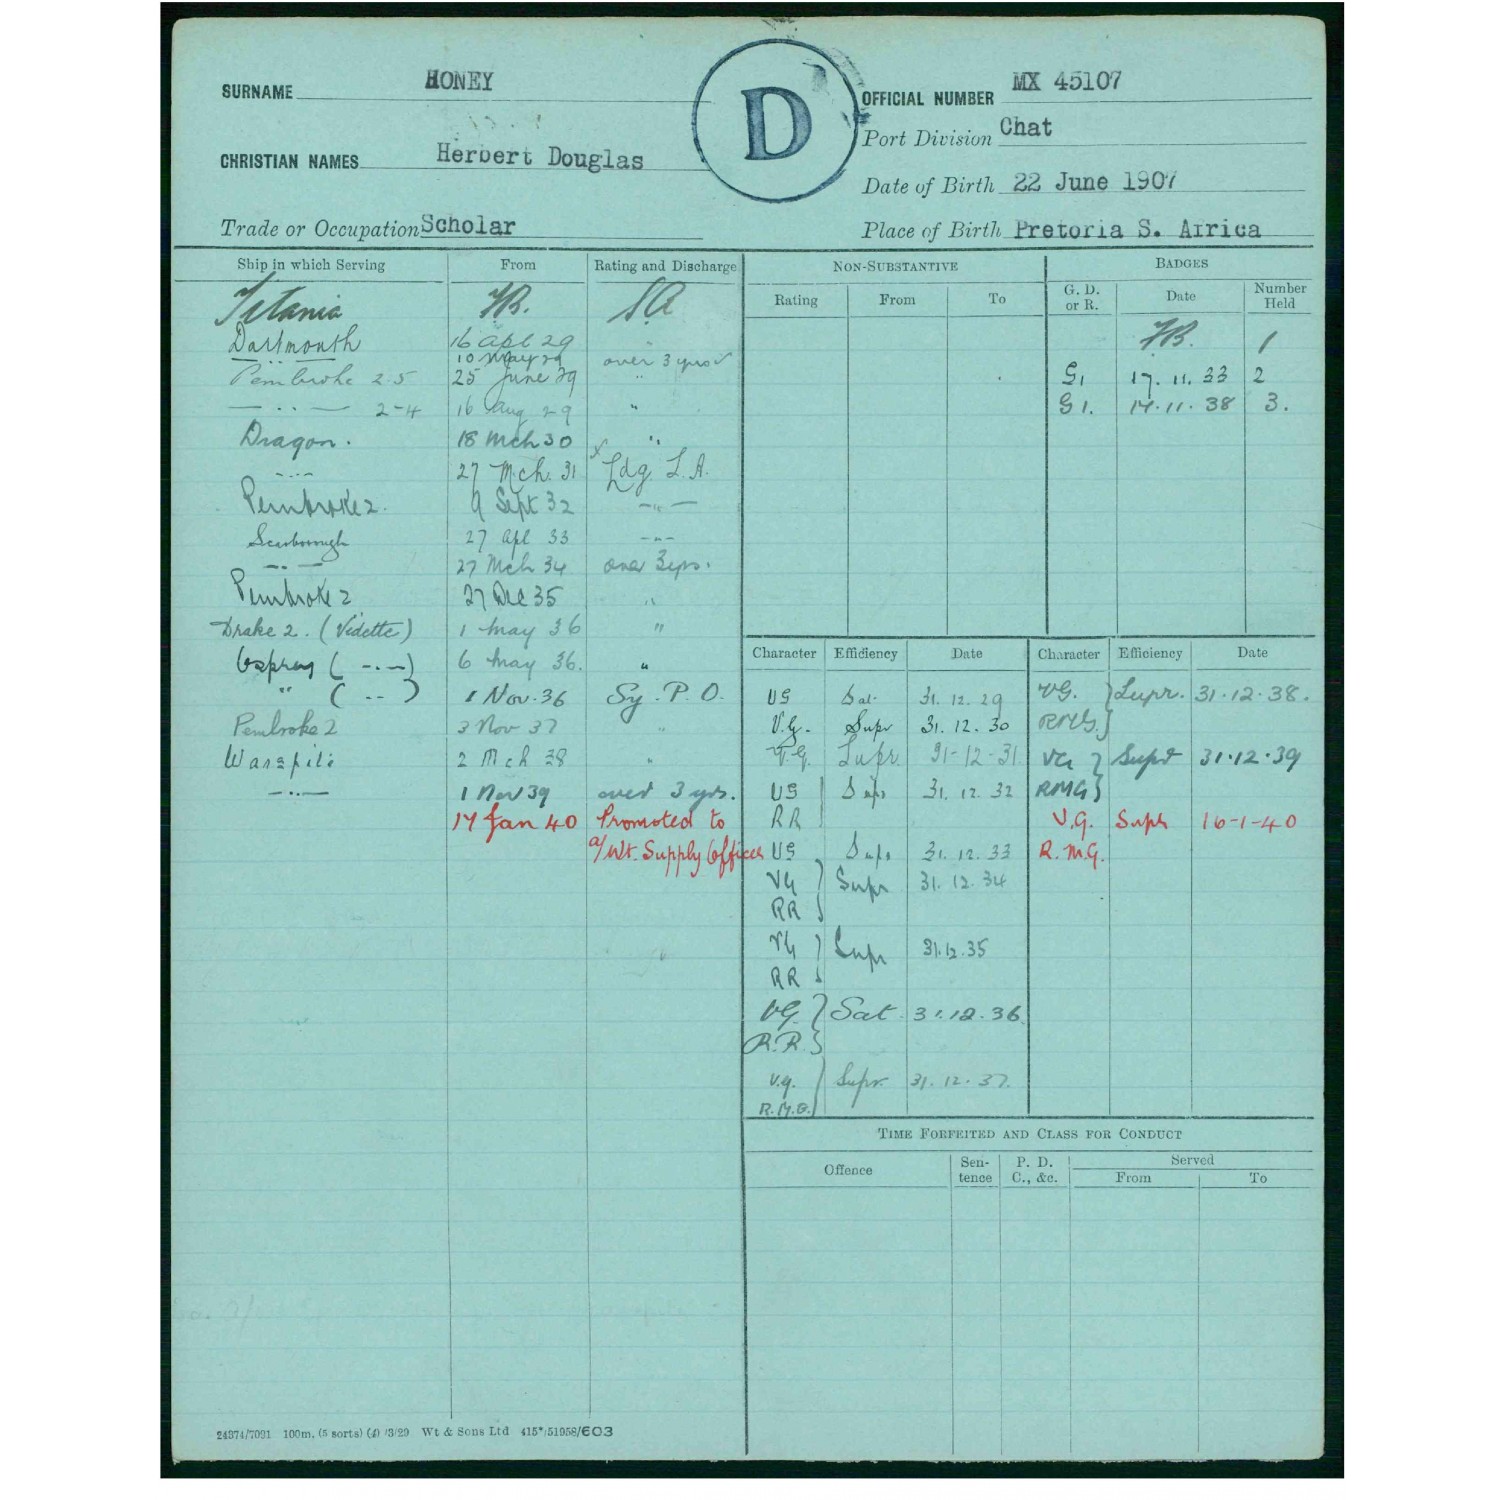 SURNAME HONEY
OFFICIAL NUMBER MX 45107
D
Port Division Chat
CHRISTIAN NAMES Herbert Douglas
Date of Birth 22 June 1907
Trade or Occupation Scholar
Place of Birth Pretoria S. Africa
Ship in which Serving From Rating and Discharge
Titania SA
Dartmouth 16 Apl 29 "
10 May 29 over 3 yrs
Pembroke 2.5 25 June 29 "
— " — 2-4 16 Aug 29 "
Dragon. 18 Mch 30 "
— " — 27 Mch. 31 x Ldg S.A.
Pembroke 2. 9 Sept 32 — " —
Scarborough 27 Apl 33 — " —
— " — 27 Mch 34 over 3 yrs.
Pembroke 2 27 Dec 35 "
Drake 2. (Vidette) 1 May 36 "
Osprey ( — " — ) 6 May 36. "
" ( — " — ) 1 Nov. 36 Sy. P.O.
Pembroke 2 3 Nov 37 "
Warspite 2 Mch 38 "
— " — 1 Nov 39 over 3 yrs.
17 Jan 40 Promoted to
a/Wt. Supply Officer
NON-SUBSTANTIVE
Rating From To
BADGES
G. D. or R. Date Number Held
1
G1 17. 11. 33 2
G1. 17. 11. 38 3.
Character Efficiency Date
VG Sat. 31. 12. 29
V.G. Supr 31. 12. 30
V.G. Supr. 31-12-31
VG Supr 31. 12. 32
RR
VG Supr 31. 12. 33
VG } Supr 31. 12. 34
RR
VG } Supr 31.12.35
RR
VG } Sat. 31.12.36
R.R.
V.G. } Supr. 31. 12. 37.
R.M.G.
Character Efficiency Date
VG. } Supr. 31.12.38.
RMG.
VG } Supr 31.12.39
RMG
V.G. Supr 16-1-40
R.M.G.
TIME FORFEITED AND CLASS FOR CONDUCT
Offence Sentence P. D. C., &c. Served
From To
24374/7091 100m. (5 sorts) (4) /3/29 Wt & Sons Ltd 415*/51958/603